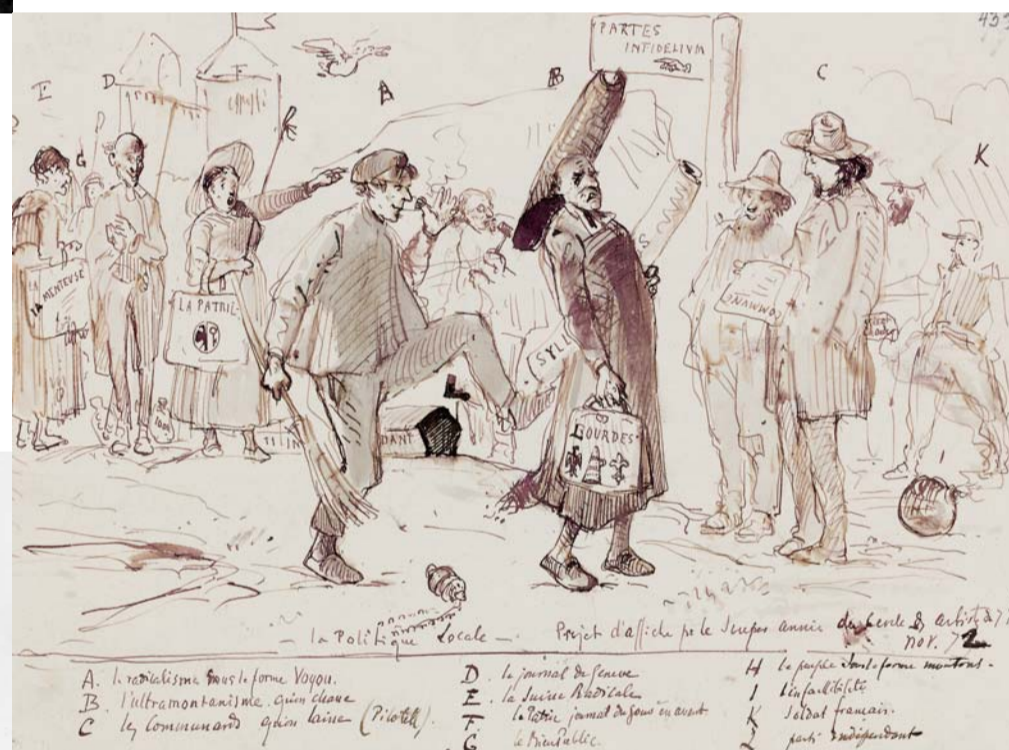 433
PARTES
INFIDELIUM
C
B
A
D
F
E
K
G
K
LA
MENTEUSE
LA PATRIE
S
SYLL
L
DANT
LOURDES
I
H
— la Politique Locale — Projet d'affiche pr le Souper annuel du Cercle des artistes
nov. 72
A. le radicalisme sous la forme Voyou.
B. l'ultramontanisme qu'on chasse
C les Communards qu'on laisse (Pilotell).
D. le journal de Genève
E. la Suisse Radicale
F. la Patrie journal du
G le Bien Public.
H le peuple sous la forme moutons.
I l'infaillibilité
K Soldat français.
L parti indépendant